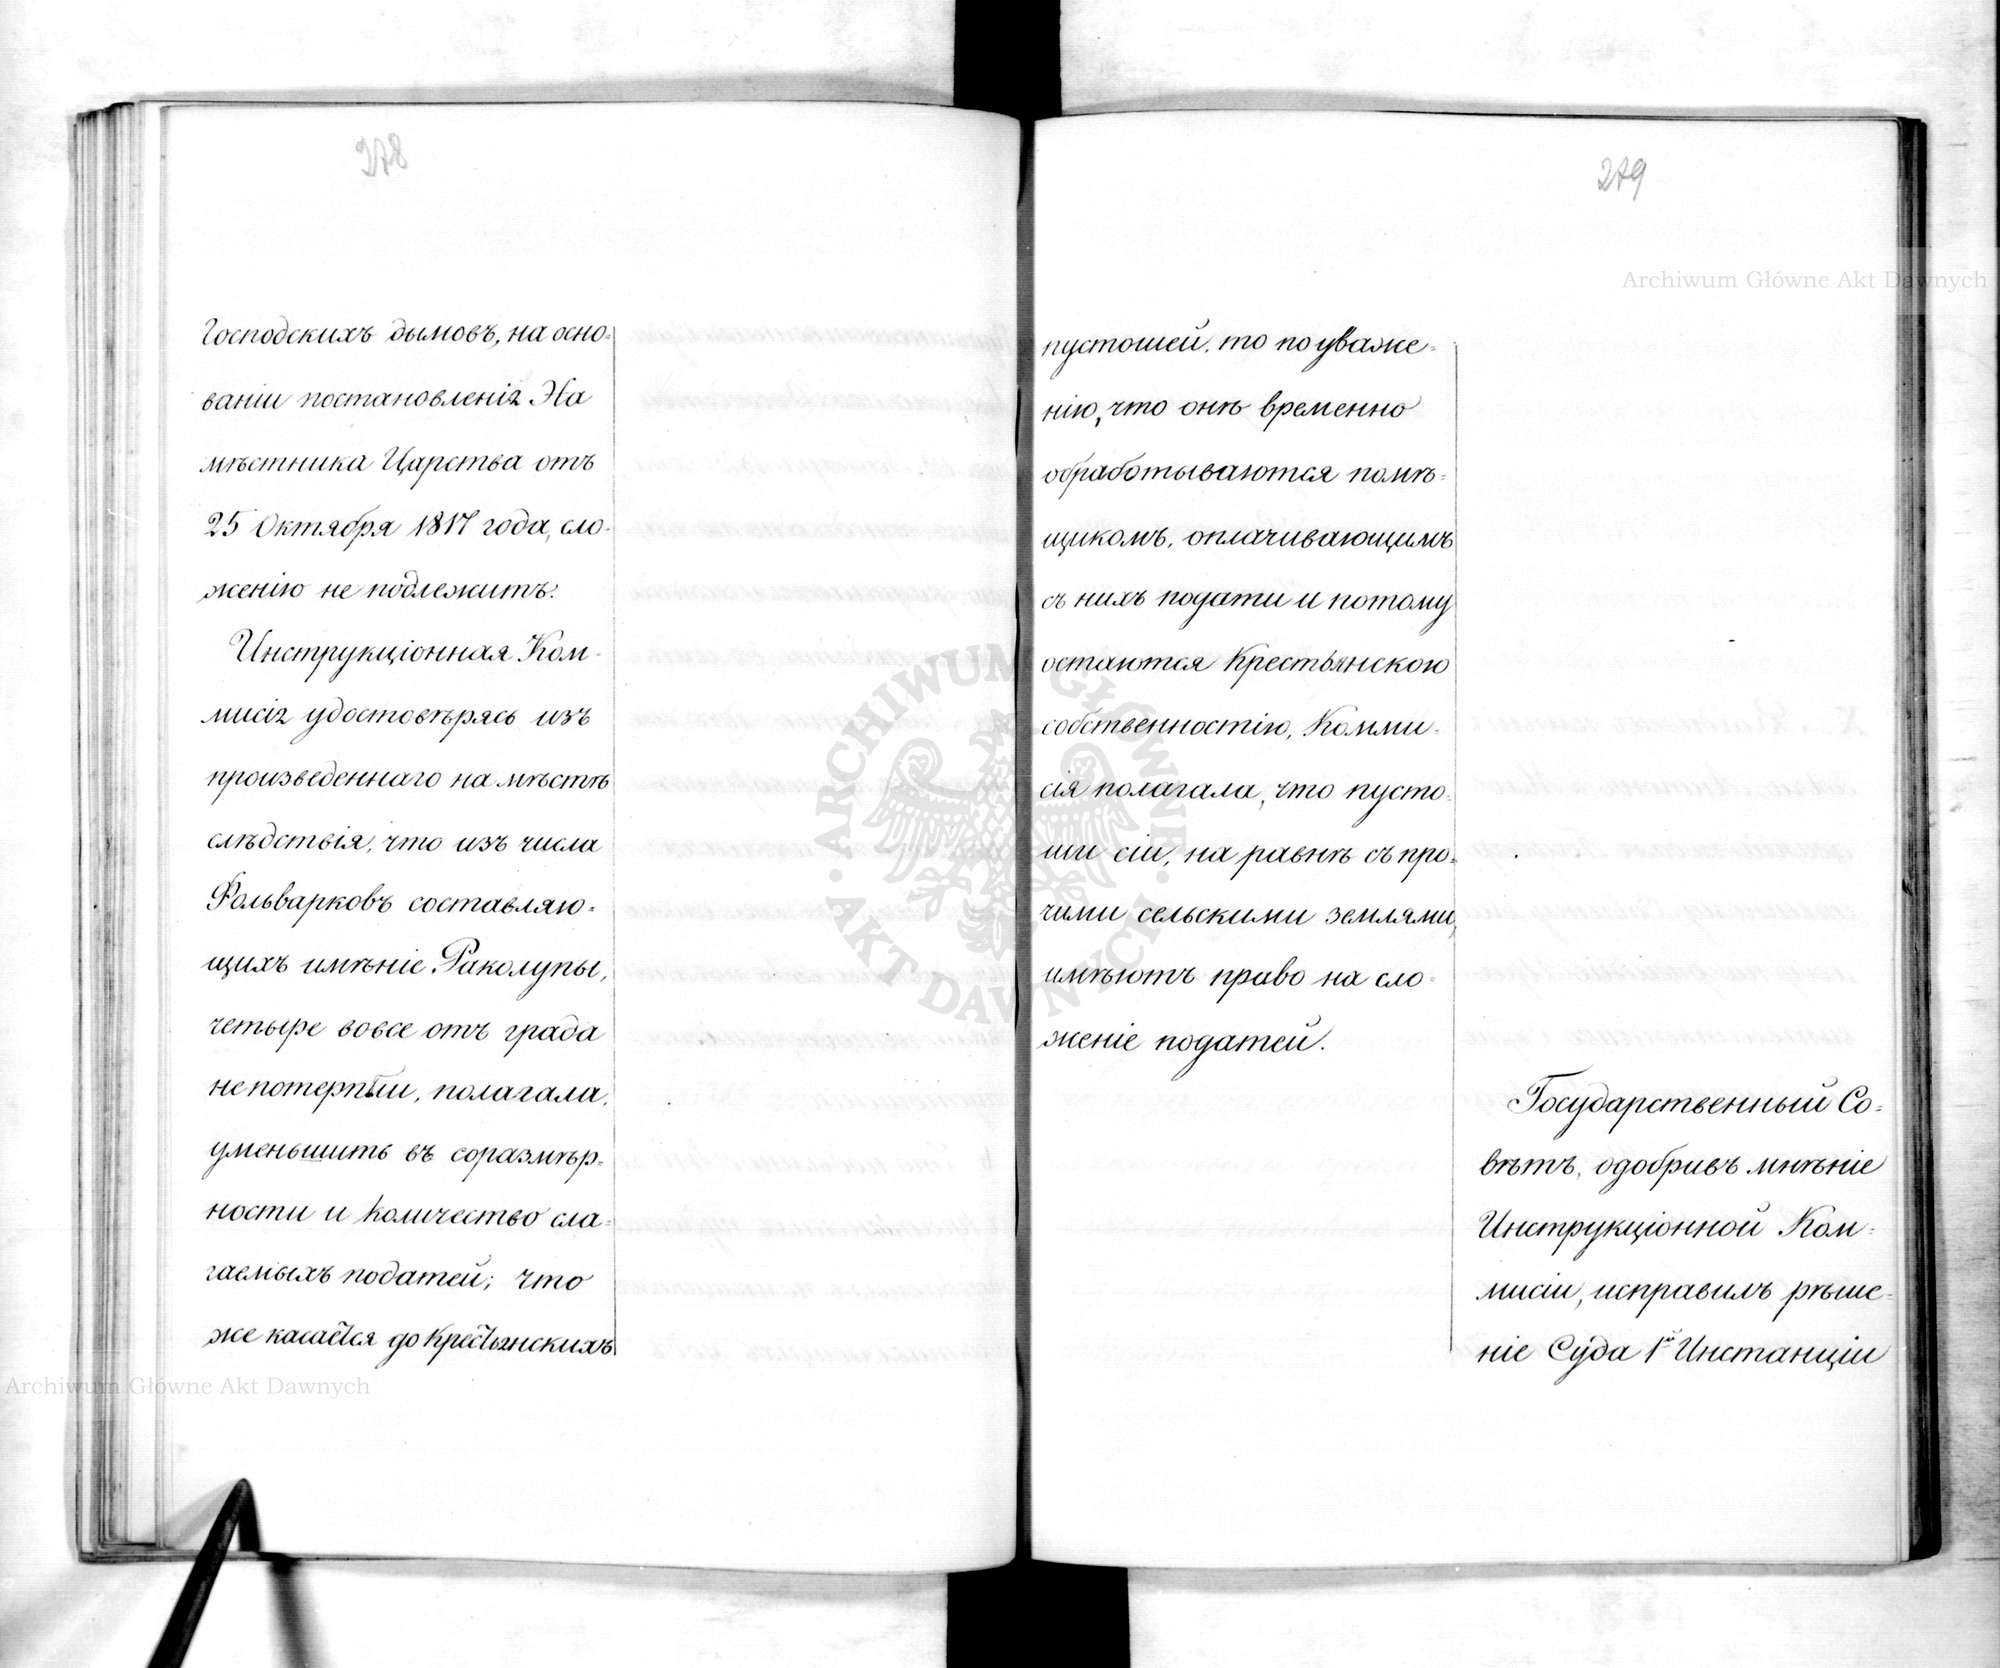 278
Господскихъ дымовъ, на осно-
ваніи постановленія На
мѣстника Царства отъ
25 Октября 1817 года, сло-
женію не подлежитъ.
Инструкціонная Ком-
мисія удостовѣрясь изъ
произведеннаго на мѣстѣ
слѣдствія, что изъ числа
Фольварковъ составляю-
щихъ имѣніе Раколупы,
четыре вовсе отъ града
не потерпѣли, полагала,
уменьшить въ соразмѣр-
ности и количество сла-
гаемыхъ податей; что
же касается до Крестьянскихъ
279
пустошей, то по уваже-
нію, что онѣ временно
обработываются помѣ-
щикомъ, оплачивающимъ
съ нихъ подати и потому
остаются Крестьянскою
собственностію, Комми-
сія полагала, что пусто-
ши сіи, на равнѣ съ про-
чими сельскими землями,
имѣютъ право на сло-
женіе податей.
Государственный Со-
вѣтъ, одобривъ мнѣніе
Инструкціонной Ком-
мисіи, исправилъ рѣше-
ніе Суда 1й Инстанціи
Archiwum Główne Akt Dawnych
ARCHIWUM GŁÓWNE · AKT DAWNYCH ·
Archiwum Główne Akt Dawnych